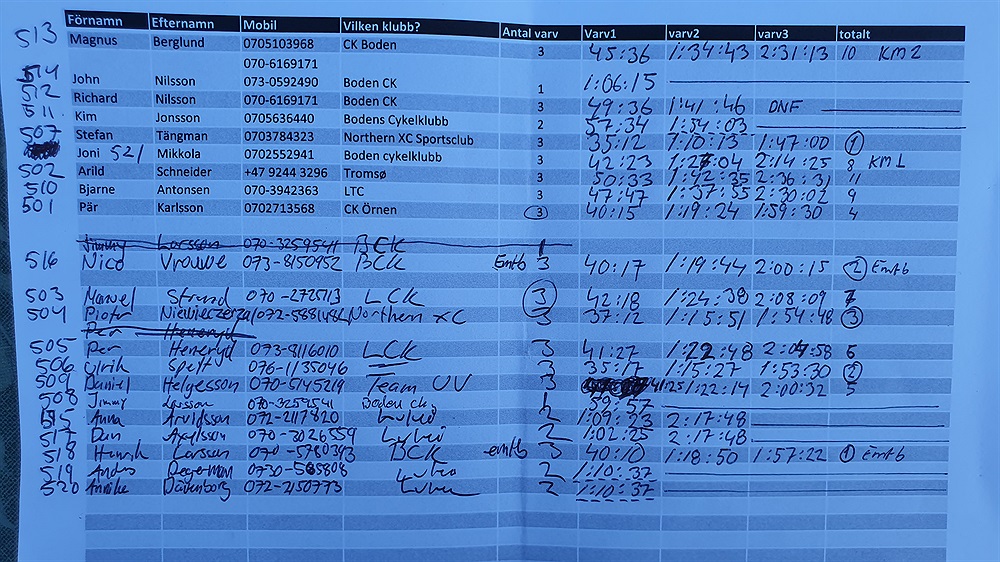 Förnamn Efternamn Mobil Vilken klubb? Antal varv Varv1 varv2 varv3 totalt
513 Magnus Berglund 0705103968 CK Boden 3 45:36 1:34:43 2:31:13 10 KM2
070-6169171
514 John Nilsson 073-0592490 Boden CK 1 1:06:15
512 Richard Nilsson 070-6169171 Boden CK 3 49:36 1:41:46 DNF
511 Kim Jonsson 0705636440 Bodens Cykelklubb 2 57:34 1:54:03
507 Stefan Tängman 0703784323 Northern XC Sportsclub 3 35:12 1:10:13 1:47:00 1
Joni 521 Mikkola 0702552941 Boden cykelklubb 3 42:23 1:27:04 2:14:25 8 KM1
502 Arild Schneider +47 9244 3296 Tromsø 3 50:33 1:42:35 2:36:31 11
510 Bjarne Antonsen 070-3942363 LTC 3 47:47 1:37:35 2:30:02 9
501 Pär Karlsson 0702713568 CK Örnen 3 40:15 1:19:24 1:59:30 4
Jimmy Larsson 070-3259541 BCK 1
516 Nico Vrouwe 073-8150952 BCK Emtb 3 40:17 1:19:44 2:00:15 2 Emtb
503 Marcel Strand 070-2725113 LCK 3 42:18 1:24:38 2:08:09 7
504 Piotr Niewieczerzal 072-5881484 Northern XC 3 37:12 1:15:51 1:54:48 3
Per Heneryd
505 Per Heneryd 073-8116010 LCK 3 41:27 1:22:48 2:04:58 6
506 Ulrik Spett 076-1135046 3 35:17 1:15:27 1:53:30 2
509 Daniel Helgesson 070-5145219 Team UV 3 41:25 1:22:14 2:00:32 5
508 Jimmy Larsson 070-3259541 Boden ck 1 59:57
515 Anna Arvidsson 072-2117820 Luleå 2 1:09:33 2:17:48
517 Dan Axelsson 070-3026559 Luleå 2 1:02:25 2:17:48
518 Henrik Larsson 070-5780343 BCK emtb 3 40:10 1:18:50 1:57:22 1 Emtb
519 Andrs Degerman 0730-585808 Luleå 2 1:10:37
520 Annika 072-2150773 Luleå 2 1:10:37